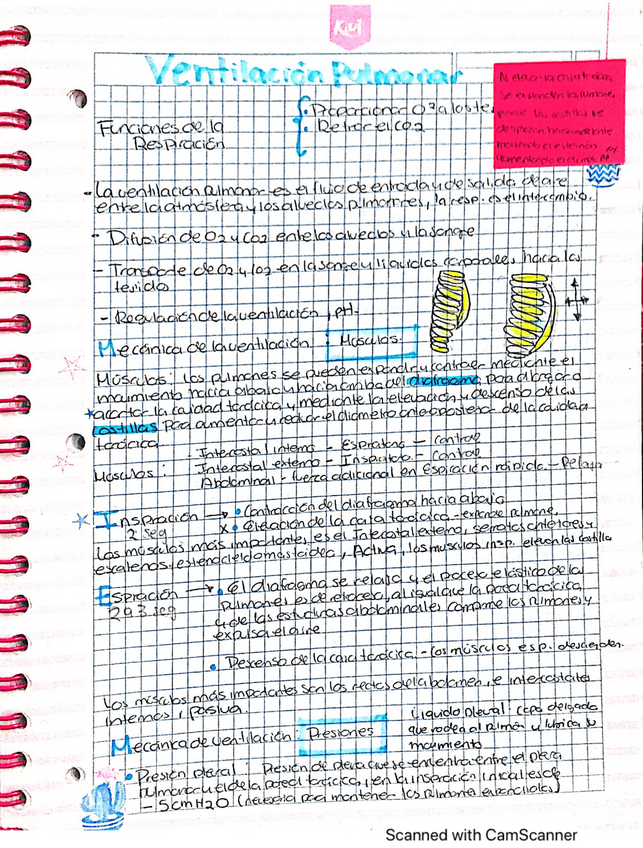 Kiwi
Ventilación Pulmonar
Al elevar la caja torácica,
se expanden los pulmones
porque las costillas se
desplazan hacia adelante
moviendo el esternón
aumentando el diámetro AP
Funciones de la
Respiración
• Proporcionar O2 a los te
• Retirar el CO2
- La ventilación pulmonar es el flujo de entrada y de salida de aire
entre la atmósfera y los alveolos pulmonares, la resp. es el intercambio.
- Difusión de O2 y CO2 entre los alveolos y la sangre
- Transporte de O2 y CO2 en la sangre y líquidos corporales hacia los
tejidos
- Regulación de la ventilación, pH.
Mecánica de la ventilación: Músculos
Músculos: los pulmones se pueden expandir y contraer mediante el
movimiento hacia abajo y hacia arriba del diafragma, para alargar o
acortar la cavidad torácica y mediante la elevación y descenso de las
costillas para aumentar y reducir el diámetro anteroposterior de la cavidad
torácica
Músculos:
- Intercostal interno - Espiratorio - contrae
Intercostal externo - Inspiratorio - contrae
Abdominal - fuerza adicional en Espiración rápida - Relaja
Inspiración → • Contracción del diafragma hacia abajo
2 seg
x • Elevación de la caja torácica - expande pulmones,
Los músculos más importantes, es el Intercostal externo, serratos anteriores y
escalenos, esternocleidomastoideo, Activa, los músculos insp. elevan las costilla
Espiración → • El diafragma se relaja y el proceso elástico de los
2 a 3 seg
pulmones es de retroceso, al igual que la pared torácica
y de las estructuras abdominales comprime los pulmones y
expulsa el aire
• Descenso de la caja torácica - Los músculos esp. descienden.
Los músculos más importantes son los rectos del abdomen, e intercostales
internos, pasiva.
Mecánica de ventilación: Presiones
Líquido pleural: capa delgada
que rodea al pulmón y lubrica su
movimiento
• Presión pleural - Presión de pleura que se encuentra entre el pleura
pulmonar y el de la pared torácica, en la inspiración inicial es de
- 5 cm H2O (necesaria para mantener los pulmones
Scanned with CamScanner